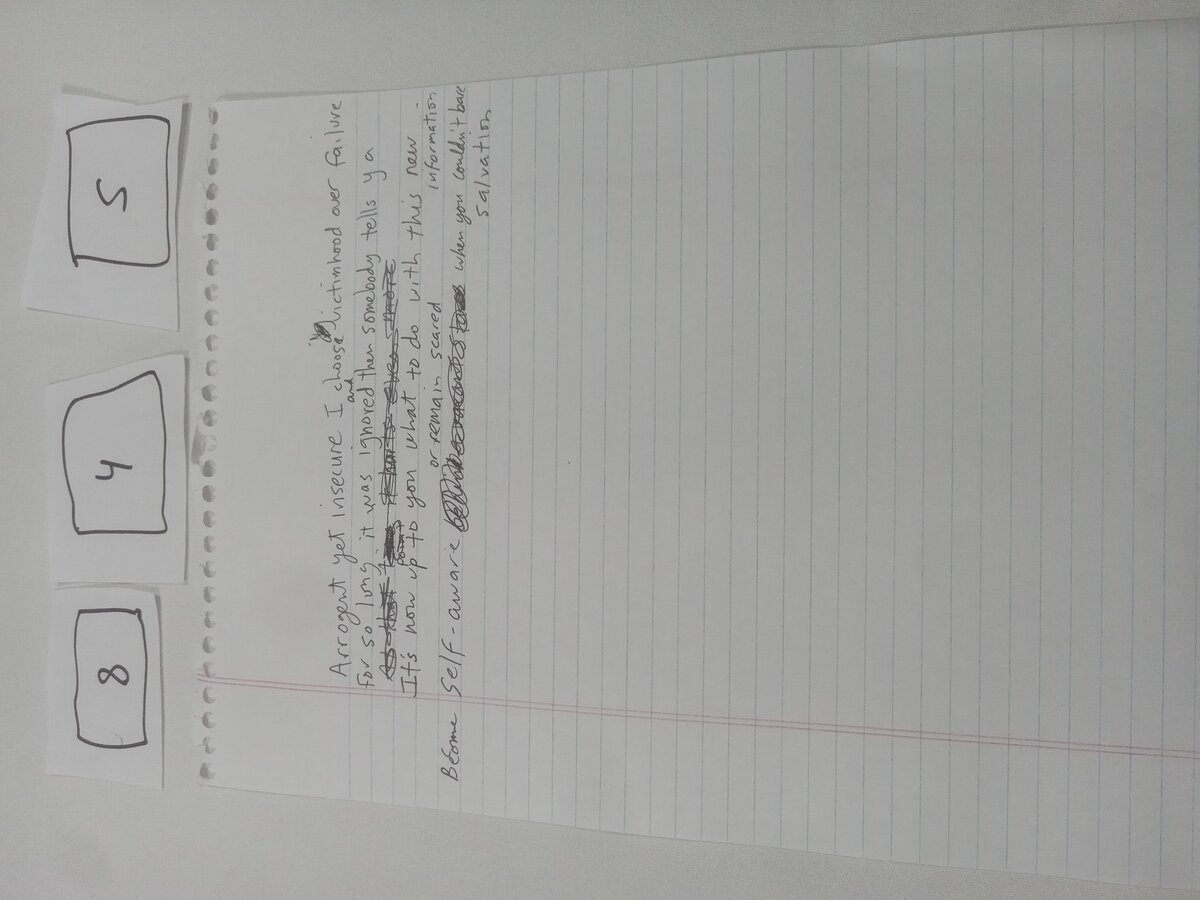 8 4 5
Arrogent yet insecure I choose victimhood over failure
for so long, it was ignored and then somebody tells ya
As that it hurts even more
It's now up to you what to do with this new
information
or remain scared
Become self-aware when you couldn't bare
salvation